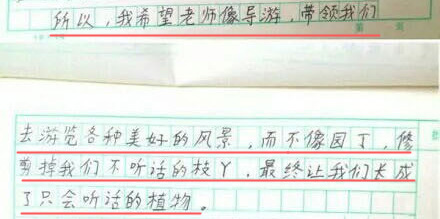 所以，我希望老师像导游，带领我们
去游览各种美好的风景，而不像园丁，修
剪掉我们不听话的枝丫，最终让我们长成
了只会听话的植物。